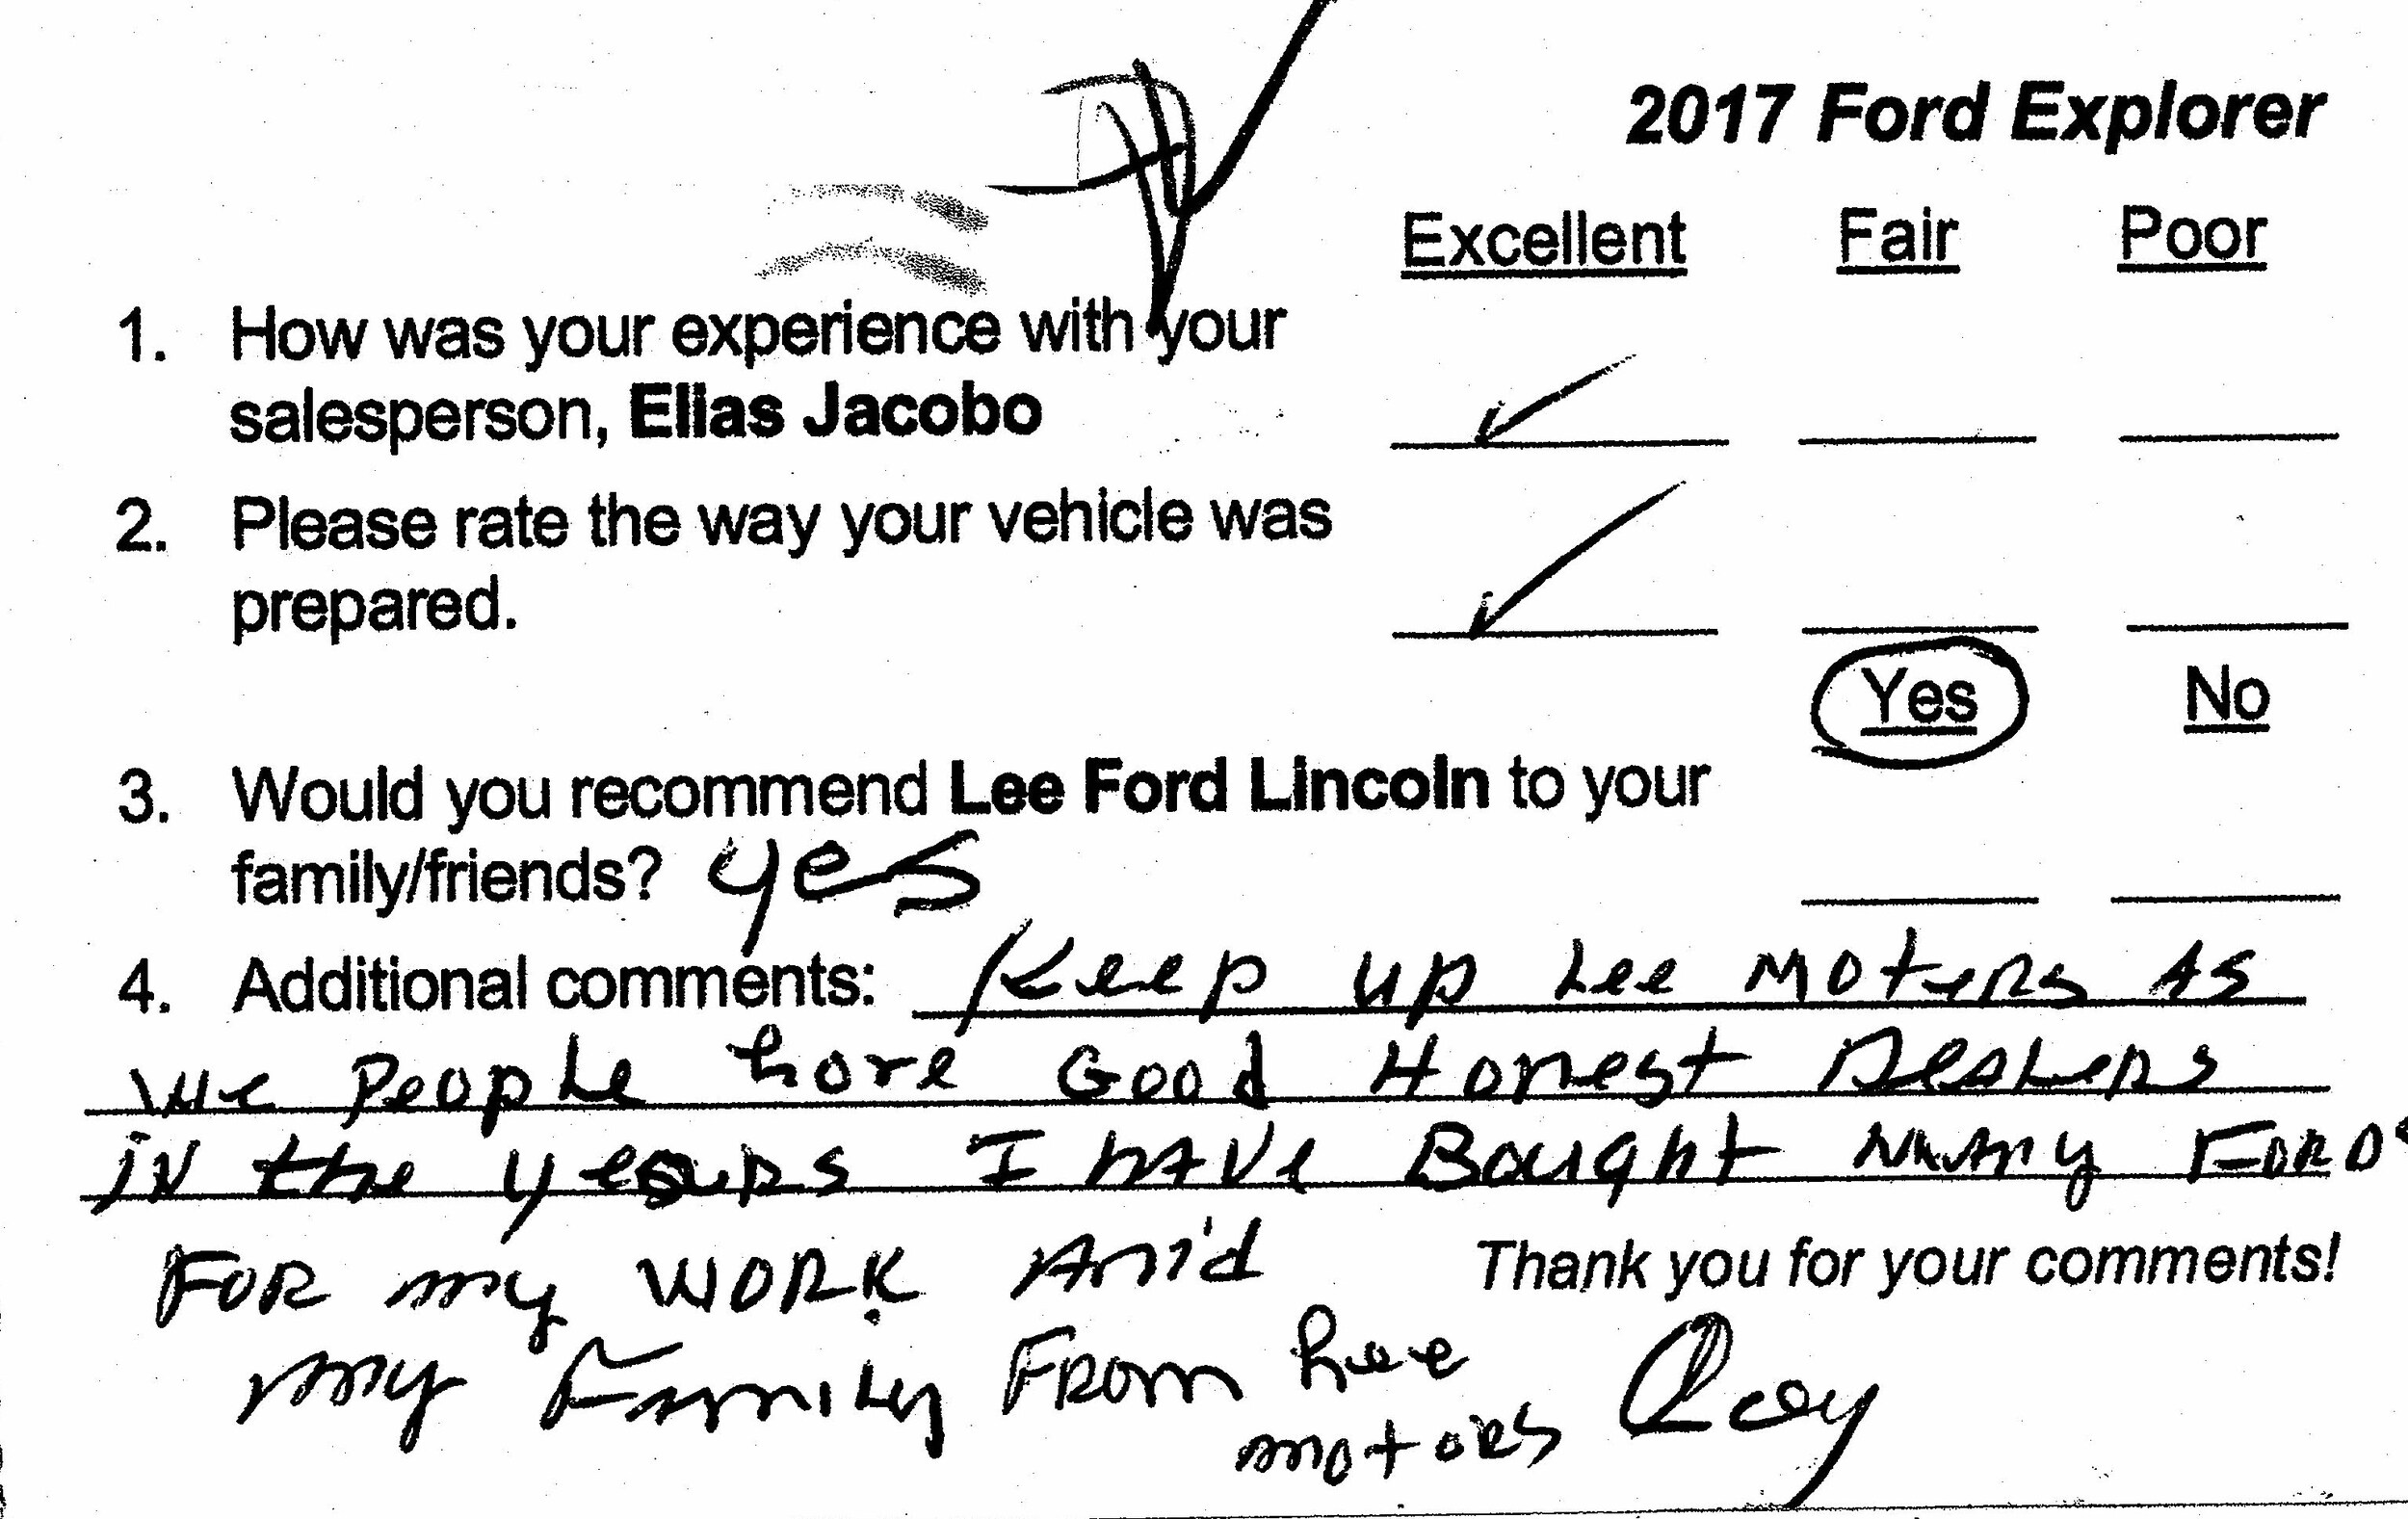 2017 Ford Explorer
Excellent Fair Poor
1. How was your experience with your
salesperson, Elias Jacobo
2. Please rate the way your vehicle was
prepared.
Yes No
3. Would you recommend Lee Ford Lincoln to your
family/friends? yes
4. Additional comments: Keep up Lee MOTERS AS
We People hove Good Honest Dealers
iN the years I HAVE Bought many FORDs
FOR my WORK And
Thank you for your comments!
my Family FROM Lee
motors Ray